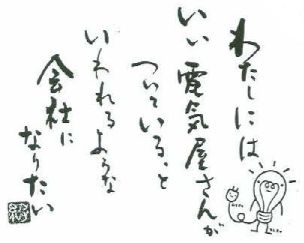 わたしには、
いい電気屋さんが
ついている。と
いわれるような
会社に
なりたい